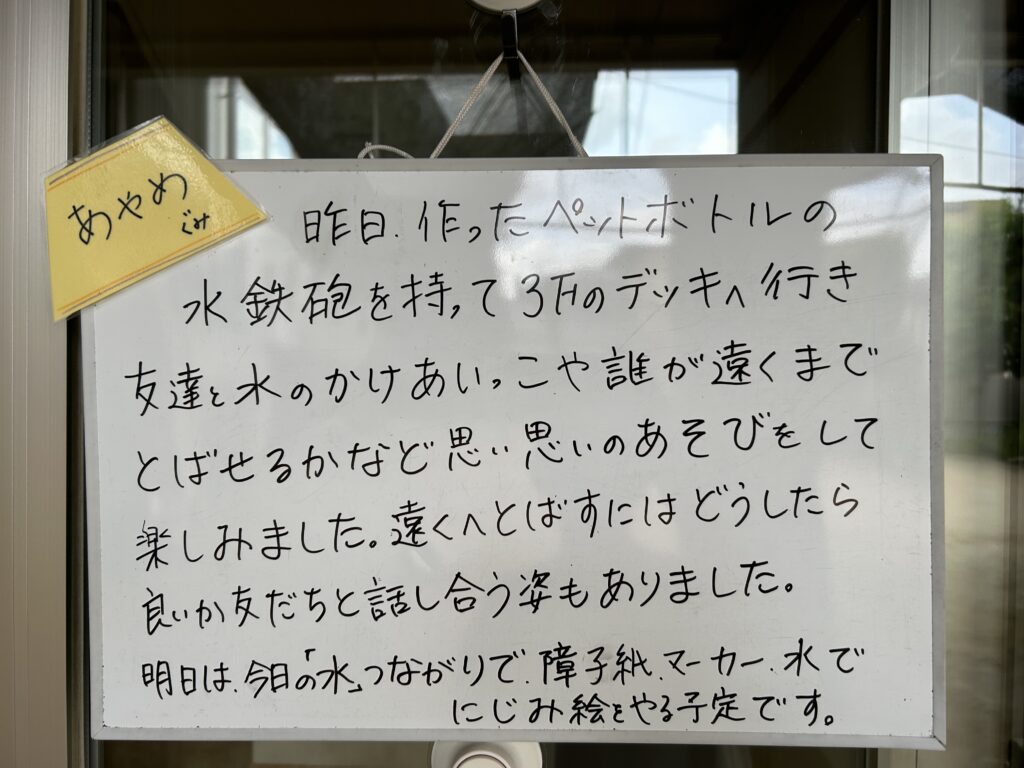 あやめ
ぐみ
昨日、作ったペットボトルの
水鉄砲を持って3Fのデッキへ行き
友達と水のかけあいっこや誰が遠くまで
とばせるかなど思い思いのあそびをして
楽しみました。遠くへとばすにはどうしたら
良いか友だちと話し合う姿もありました。
明日は、今日の「水」つながりで、障子紙、マーカー、水で
にじみ絵をやる予定です。